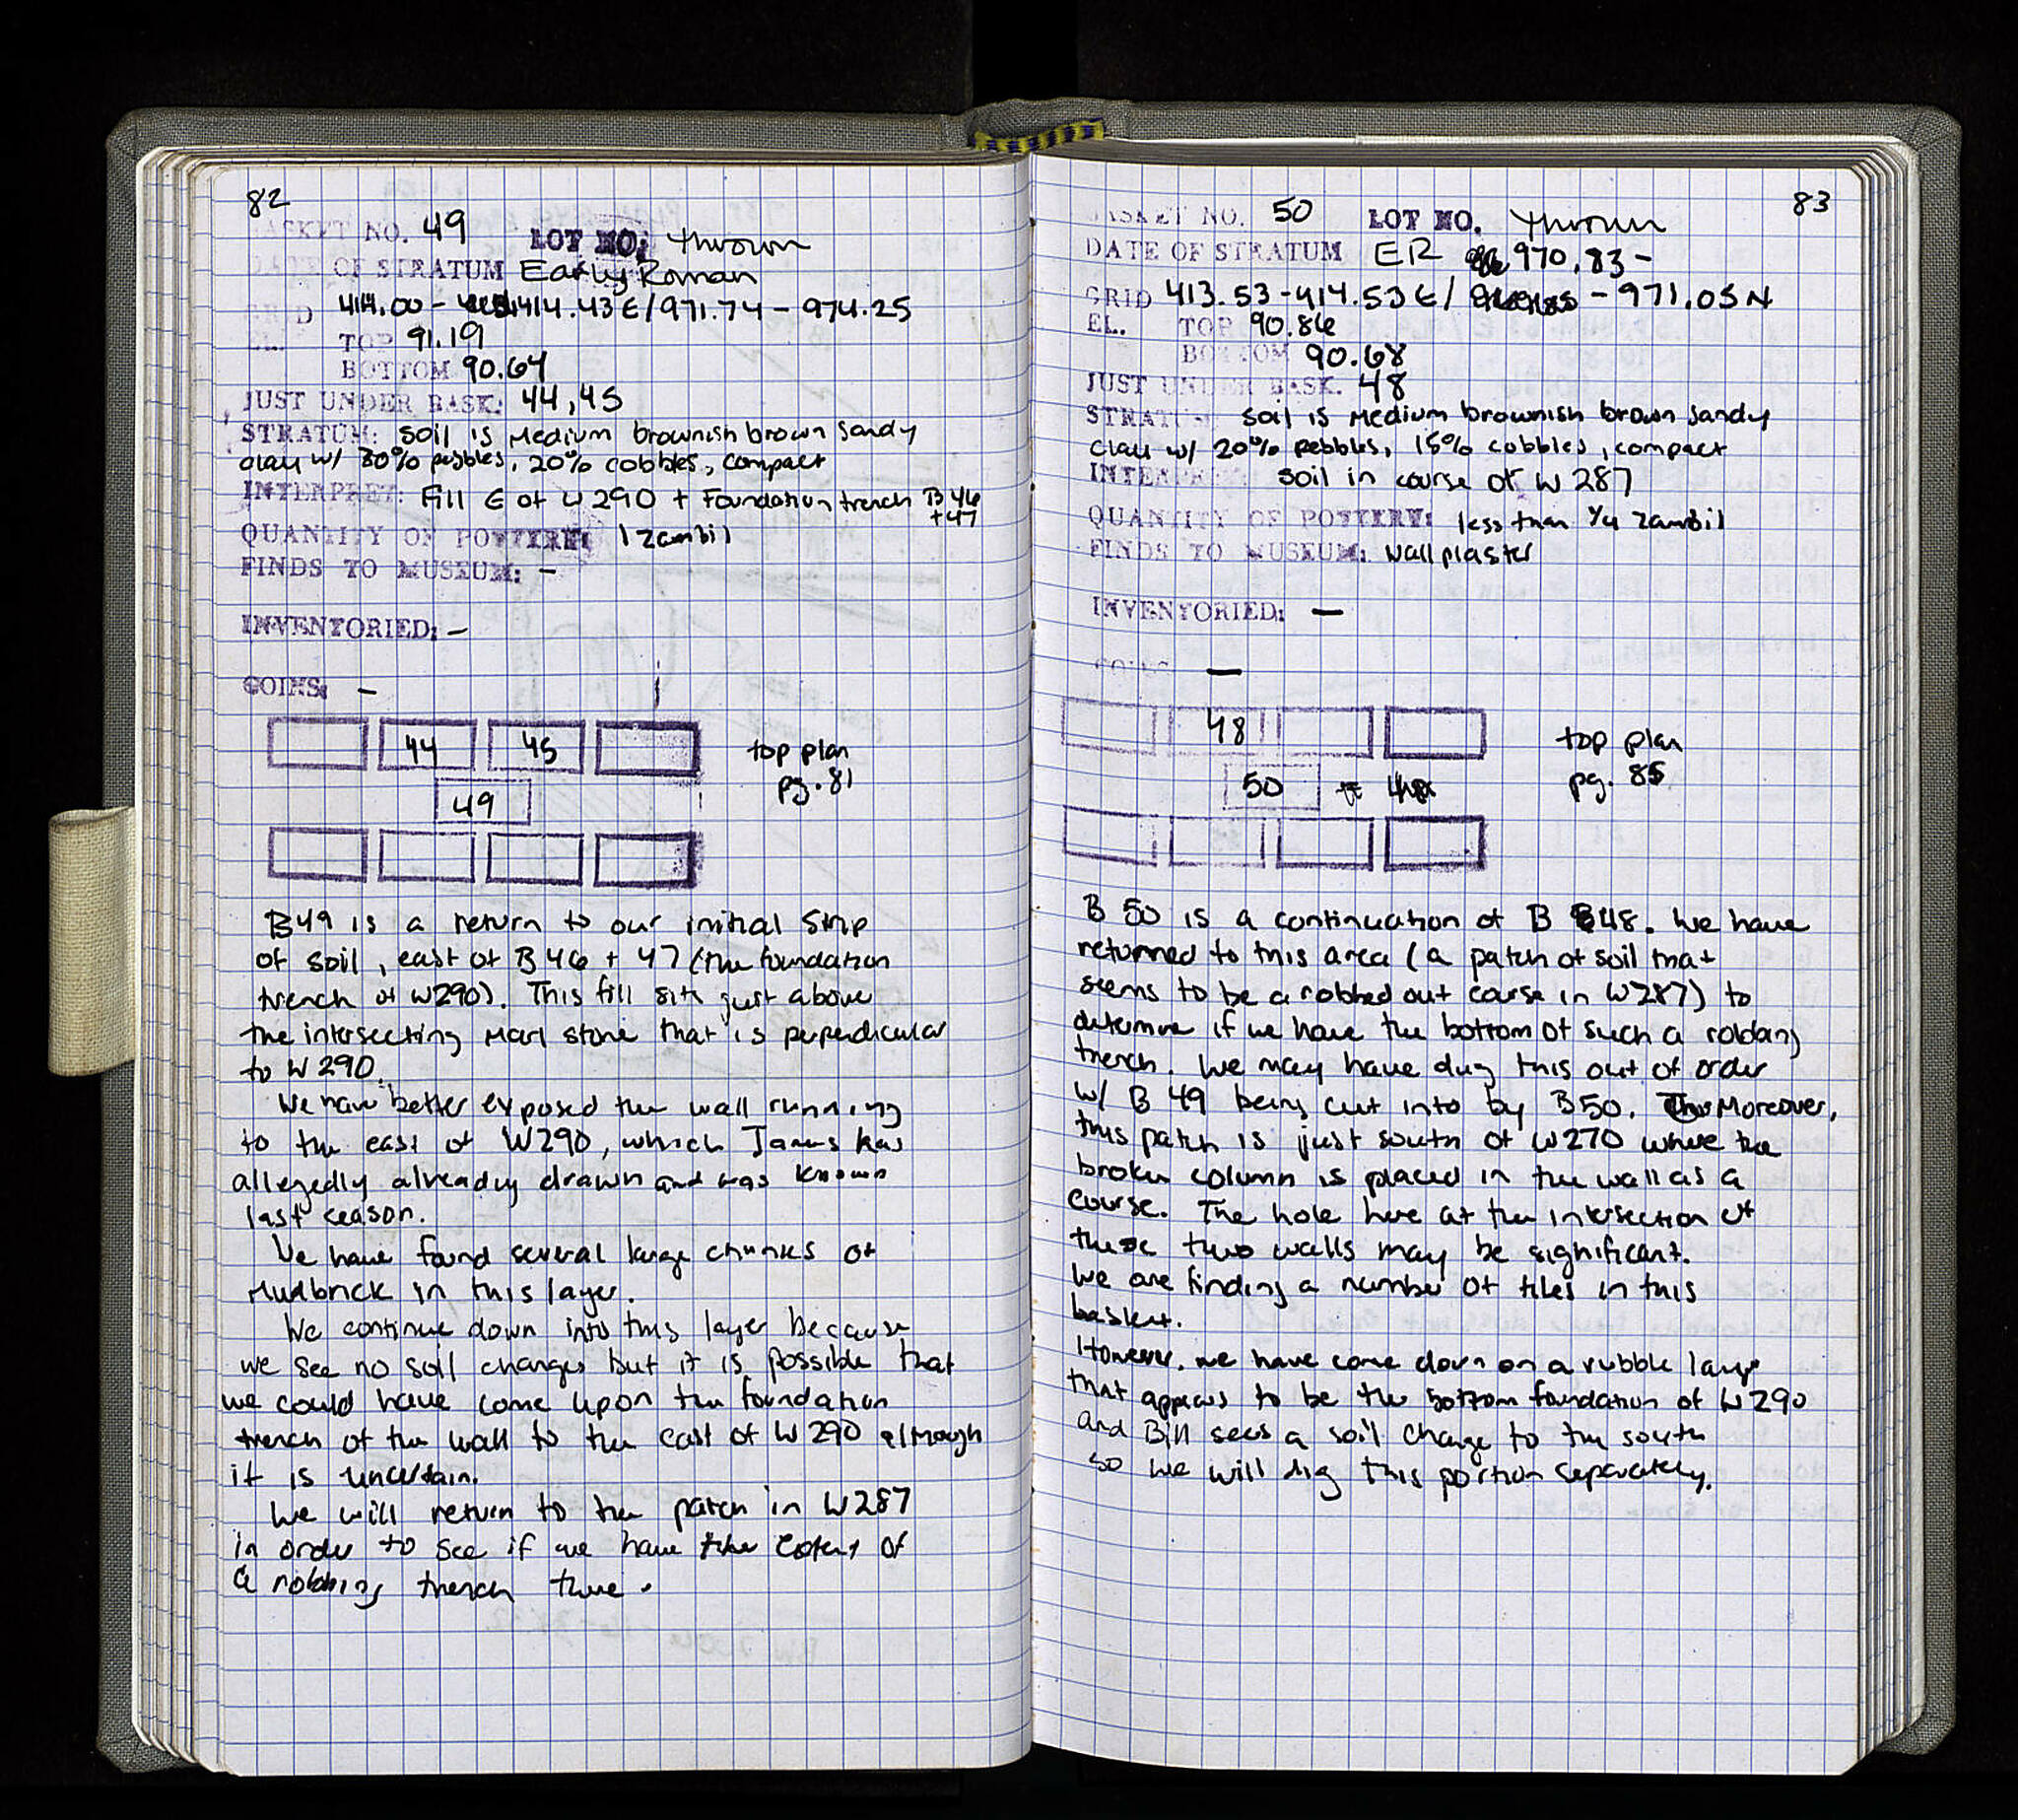 82
BASKET NO. 49 LOT NO: thrown
DATE OF STRATUM Early Roman
GRID 414.00 - 414.43 E / 971.74 - 974.25
EL. TOP 91.19
BOTTOM 90.64
JUST UNDER BASK: 44, 45
STRATUM: soil is medium brownish brown sandy
clay w/ 30% pebbles, 20% cobbles, compact
INTERPRET: Fill E of W 290 + Foundation trench B 46
+ 47
QUANTITY OF POTTERY: 1 zambil
FINDS TO MUSEUM: -
INVENTORIED: -
COINS: -
44 45
49
top plan
pg. 81
B49 is a return to our initial strip
of soil, east of B 46 + 47 (the foundation
trench of W290). This fill sits just above
the intersecting marl stone that is perpendicular
to W 290.
We have better exposed the wall running
to the east of W290, which James has
allegedly already drawn and was known
last season.
We have found several large chunks of
Mudbrick in this layer.
We continue down into this layer because
we see no soil changes but it is possible that
we could have come upon the foundation
trench of the wall to the east of W 290 although
it is uncertain.
We will return to the patch in W287
in order to see if we have the extent of
a robbing trench there.
83
BASKET NO. 50 LOT NO. thrown
DATE OF STRATUM ER 970.83 -
GRID 413.53 - 414.53 E / - 971.05 N
EL. TOP 90.86
BOTTOM 90.68
JUST UNDER BASK. 48
STRATUM: soil is medium brownish brown sandy
clay w/ 20% pebbles, 15% cobbles, compact
INTERPRET: soil in course of W 287
QUANTITY OF POTTERY: less than 1/4 zambil
FINDS TO MUSEUM: wall plaster
INVENTORIED: -
COINS -
48
50
top plan
pg. 85
B 50 is a continuation of B 48. We have
returned to this area (a patch of soil that
seems to be a robbed out course in W287) to
determine if we have the bottom of such a robbing
trench. We may have dug this out of order
w/ B 49 being cut into by B50. Moreover,
this patch is just south of W270 where the
broken column is placed in the wall as a
course. The hole here at the intersection of
these two walls may be significant.
We are finding a number of tiles in this
basket.
However, we have come down on a rubble layer
that appears to be the bottom foundation of W 290
and Bill sees a soil change to the south
so we will dig this portion separately.